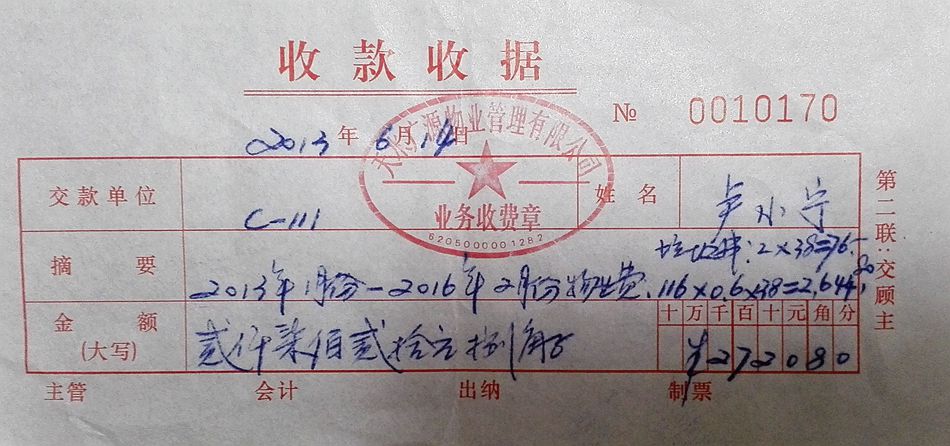 收款收据
№ 0010170
2013年6月14日
天水广源物业管理有限公司
业务收费章
6205000001282
交款单位 C-111 姓名 卢小宁
垃圾费:2×38=76
摘要 2013年1月份-2016年2月份物业费.116×0.6×38=2,644.80
金额(大写) 贰仟柒佰贰拾元捌角
十万千百十元角分
¥272080
主管 会计 出纳 制票
第二联:交顾主